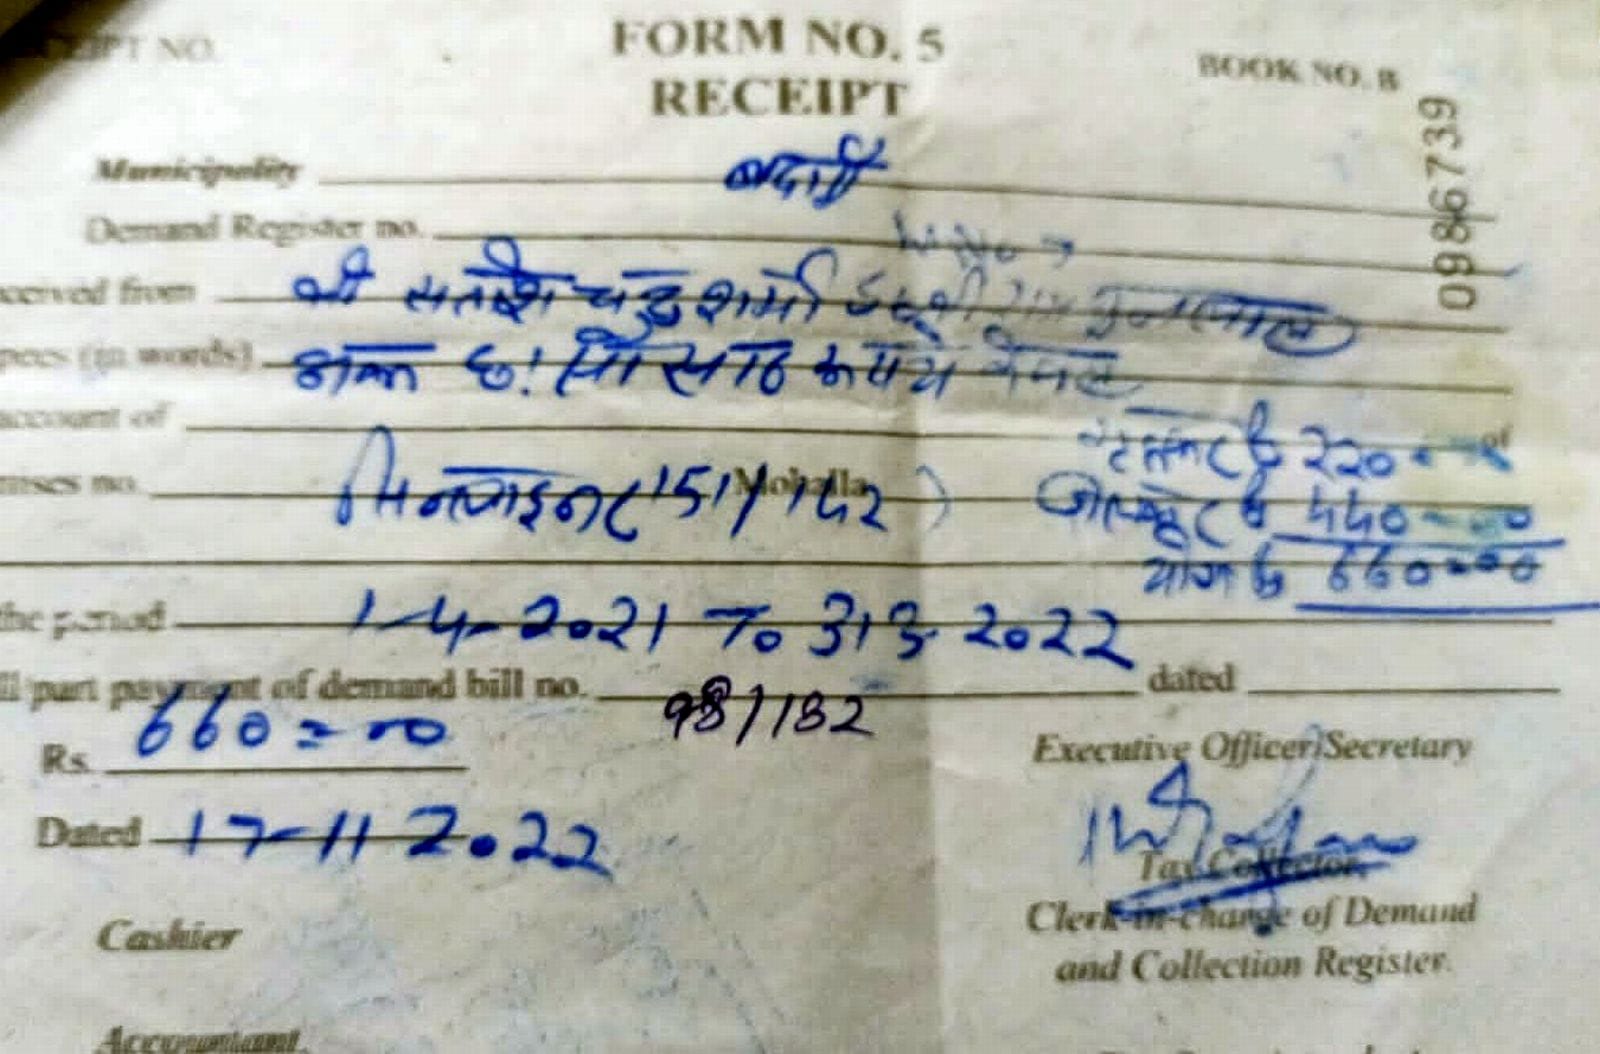 RECEIPT NO.
FORM NO. 5
RECEIPT
BOOK NO. B
0986739
Municipality बदायूँ
Demand Register no.
ceived from श्री सतीश चन्द्र शर्मा
pees (in words) छः सौ साठ रुपये
account of of
mises no. सिविल लाइन (151/142) Mohalla
220
440
योग 660=00
the period 1-4-2021 To 31 3 2022
ll/part payment of demand bill no. 98/182 dated
Rs. 660=00
Executive Officer/Secretary
Dated 17-11 2022
Tax Collector.
Cashier
Clerk-in-charge of Demand
and Collection Register.
Accountant